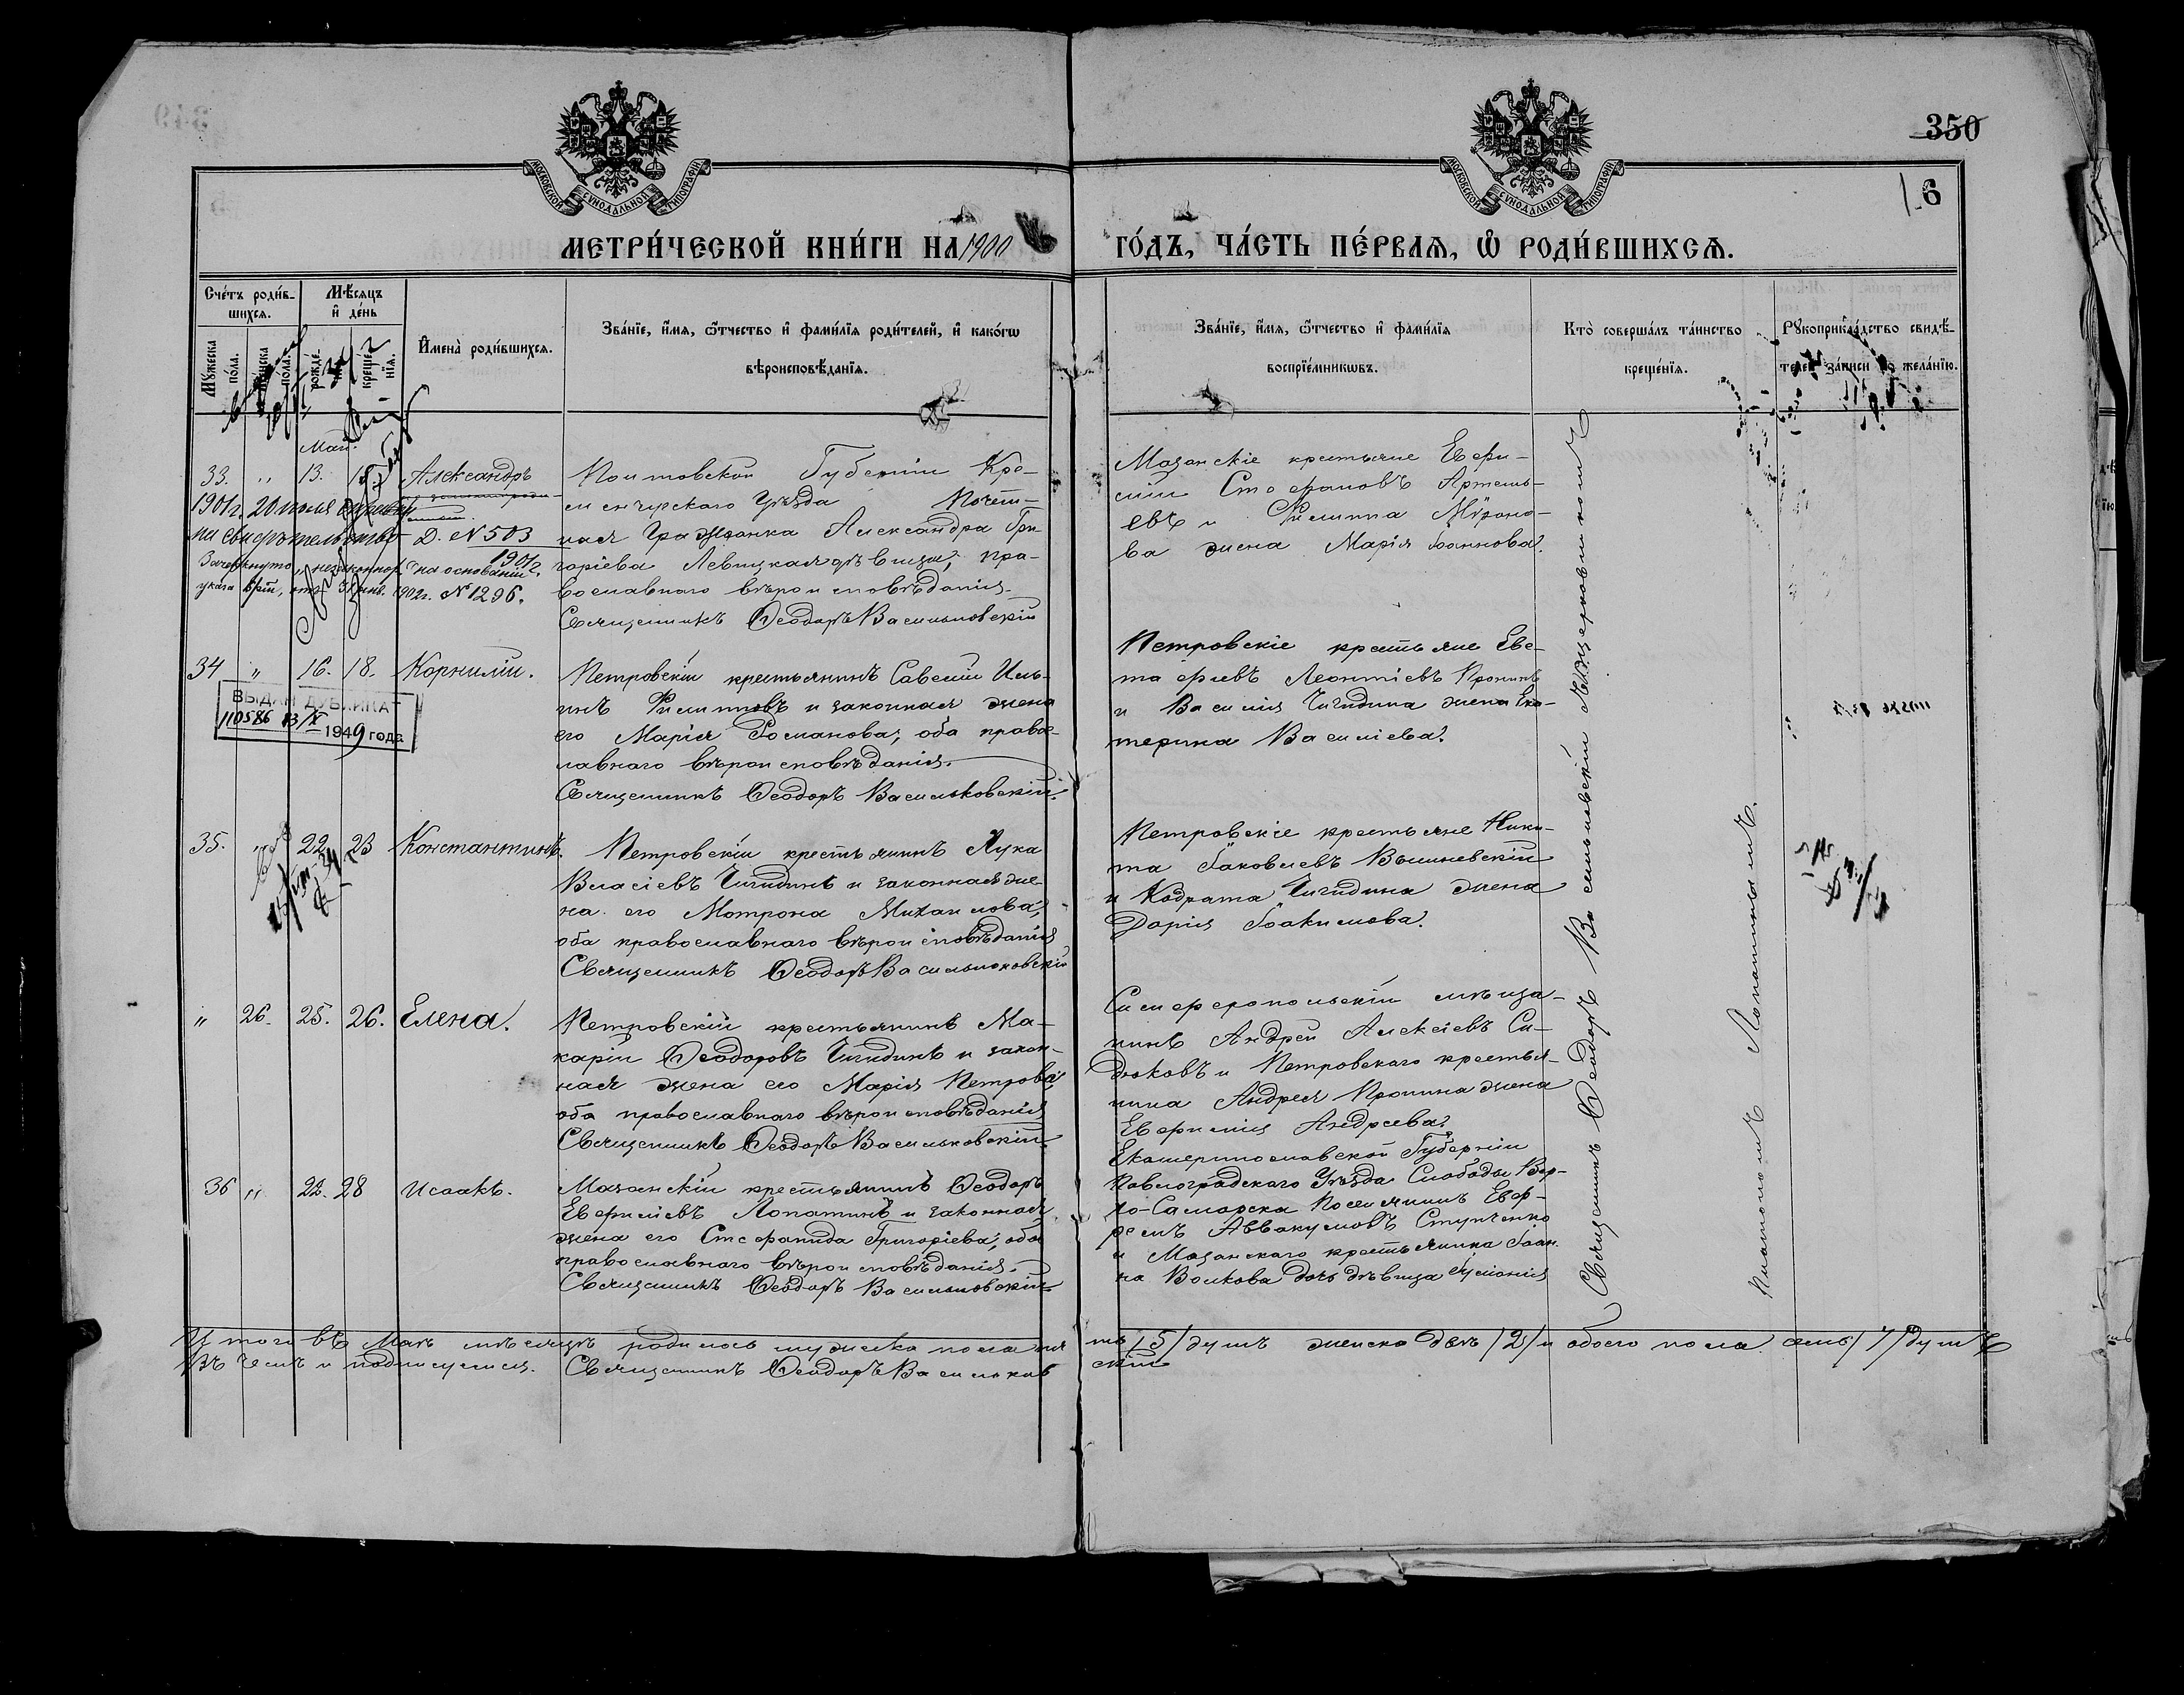 350
6
МОСКОВСКОЙ СУНОДАЛЬНОЙ ТИПОГРАФІИ
МОСКОВСКОЙ СУНОДАЛЬНОЙ ТИПОГРАФІИ
МЕТРИ́ЧЕСКОЙ КНИ́ГИ НА 1900
ГО́ДЪ, ЧА́СТЬ ПЕ́РВАѦ, Ѡ҆ РОДИ́ВШИХСѦ.
Сче́тъ роди́в-
шихсѧ.
Мѣ́сѧцъ
и҆ де́нь
Мꙋ́жеска по́ла.
Же́нска по́ла.
рожде́-
креще́-
нїѧ.
И҆мена̀ роди́вшихсѧ.
Зва́нїе, и҆́мѧ, ѻ҆́тчество и҆ фами́лїѧ роди́телей, и҆ како́гѡ
вѣроисповѣ́данїѧ.
Зва́нїе, и҆́мѧ, ѻ҆́тчество и҆ фами́лїѧ
воспрїе́мникѡвъ.
Кто̀ соверша́лъ та́инство
креще́нїѧ.
Рꙋкоприкла́дство свидѣ́-
телей за́писи по жела́нїю.
Май.
33. " 13. Александръ
1901 г. 20 июля
на свидѣтельство Д. № 503
1901 г.
Зачеркнуто "незаконнор." на основаніи
указа отъ 31 янв. 1902 г. № 1296.
Полтавской Губерніи Кре-
менчугскаго Уѣзда Почет-
ная Гражданка Александра Гри
горіева Левицкая дѣвица, пра-
вославнаго вѣроисповѣданія.
Священникъ Ѳеодоръ Васильковскій
Мазанскіе крестьяне Ефи-
мій Стефановъ Артемь-
евъ и Филиппа Миронo-
ва жена Марія Іоаннова.
34 " 16. 18. Корнилій.
ВЫДАН ДУБЛИКАТ
110586 13/X 1949 года
Петровскій крестьянинъ Савелій Иль-
инъ Филипповъ и законная жена
его Марія Романова, оба правос-
лавнаго вѣроисповѣданія.
Священникъ Ѳеодоръ Васильковскій.
Петровскіе крестьяне Евс-
тафіевъ Леонтіевъ Пронинъ
и Василія Чигидина жена Ека-
терина Васильева.
35. " 22 23 Константинъ.
Петровскій крестьянинъ Лука
Власіевъ Чигидинъ и законная же-
на его Мотрона Михаилова,
оба православнаго вѣроисповѣданія
Священникъ Ѳеодоръ Васильковскій
Петровскіе крестьяне Ники-
та Іаковлевъ Вышневскій
и Кодрата Чигидина жена
Дарія Іоакимова.
" 26. 25. 26. Елена.
Петровскій крестьянинъ Ма-
карій Ѳеодоровъ Чигидинъ и закон-
ная жена его Марія Петрова,
оба православнаго вѣроисповѣданія
Священникъ Ѳеодоръ Васильковскій.
Симферопольскій мѣща-
нинъ Андрей Алексіевъ Си-
дюковъ и Петровскаго крестья-
нина Андрея Пронина жена
Евфимія Андреева.
36 " 22. 28 Исаакъ.
Мазанскій крестьянинъ Ѳеодоръ
Евфиміевъ Лопатинъ и законная
жена его Стефанида Григоріева, оба
православнаго вѣроисповѣданія.
Священникъ Ѳеодоръ Васильковскій
Екатеринославской Губерніи
Павлоградскаго Уѣзда Слободы Вер-
хо-Самарска Поселянинъ Евф-
ремъ Аввакумовъ Ступченко
и Мазанскаго крестьянина Іоан-
на Волкова дочь дѣвица
Священникъ Ѳеодоръ Васильковскій
Псаломщикомъ Лопатинымъ.
Итого въ Маѣ мѣсяцѣ родилось мужеска пола пя
ть /5/ душъ женска двѣ /2/ и обоего пола семь /7/ душъ
Въ чемъ и подписуемся. Священникъ Ѳеодоръ Васильков
скій